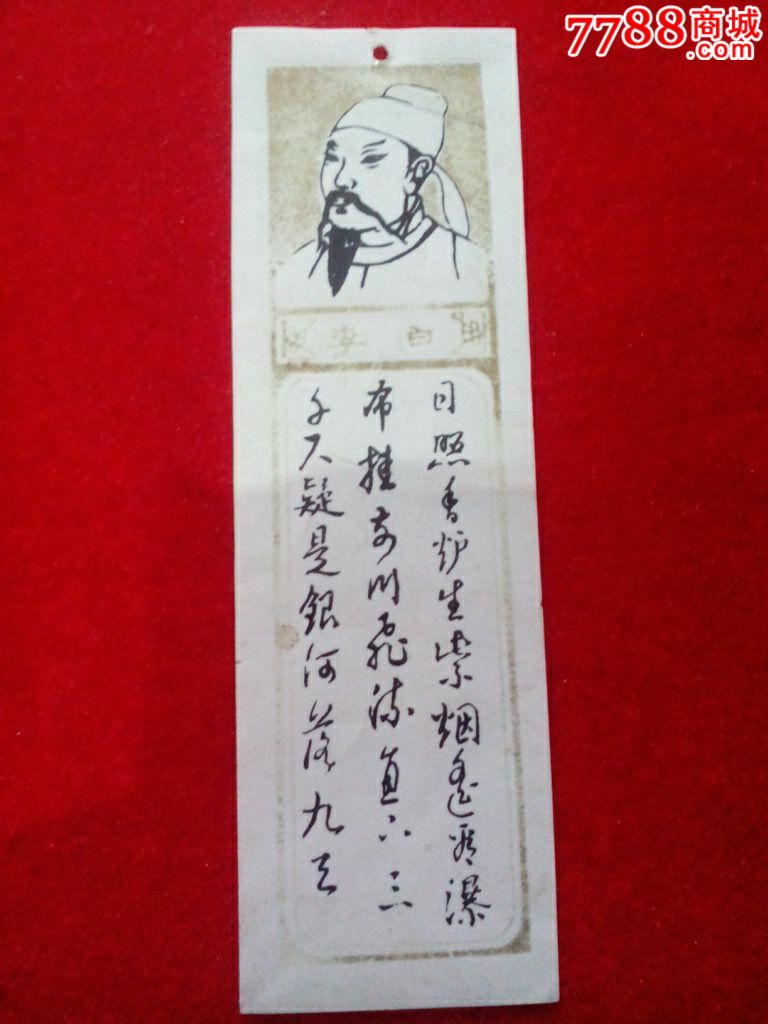 7788商城
.com
李白
日照香炉生紫烟遥看瀑
布挂前川飞流直下三
千尺疑是銀河落九天